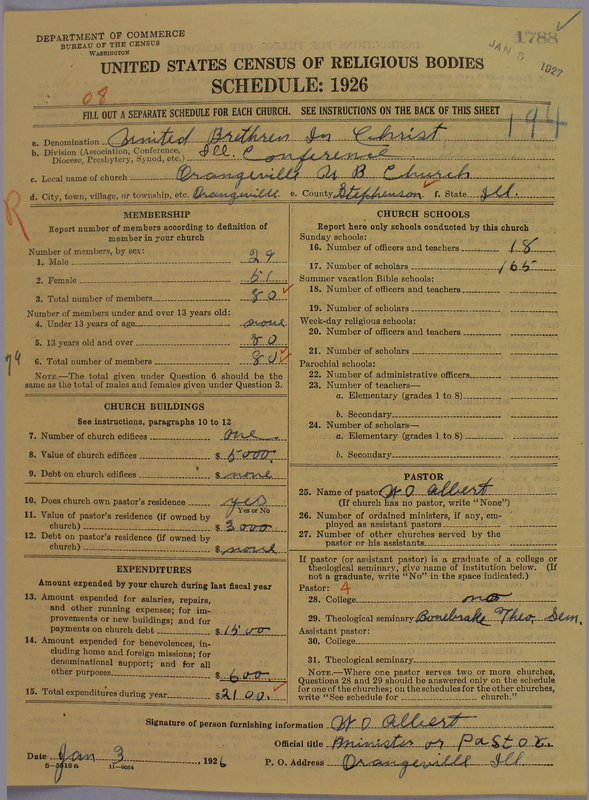 DEPARTMENT OF COMMERCE
BUREAU OF THE CENSUS
WASHINGTON
1788
JAN 5 1927
UNITED STATES CENSUS OF RELIGIOUS BODIES
SCHEDULE: 1926
08
FILL OUT A SEPARATE SCHEDULE FOR EACH CHURCH. SEE INSTRUCTIONS ON THE BACK OF THIS SHEET
194
a. Denomination United Brethren In Christ
b. Division (Association, Conference, Diocese, Presbytery, Synod, etc.) Ill. Conference
c. Local name of church Orangeville U B Church
d. City, town, village, or township, etc. Orangeville e. County Stephenson f. State Ill.
R
MEMBERSHIP
Report number of members according to definition of
member in your church
Number of members, by sex:
1. Male 29
2. Female 51
3. Total number of members 80
Number of members under and over 13 years old:
4. Under 13 years of age none
5. 13 years old and over 80
6. Total number of members 80
79
NOTE.—The total given under Question 6 should be
same as the total of males and females given under Question 3.
CHURCH BUILDINGS
See instructions, paragraphs 10 to 12
7. Number of church edifices one
8. Value of church edifices $ 5000.
9. Debt on church edifices $ none
10. Does church own pastor's residence yes
Yes or No
11. Value of pastor's residence (if owned by
church) $ 3000
12. Debt on pastor's residence (if owned by
church) $ none
EXPENDITURES
Amount expended by your church during last fiscal year
13. Amount expended for salaries, repairs,
and other running expenses; for im-
provements or new buildings; and for
payments on church debt $ 1500
14. Amount expended for benevolences, in-
cluding home and foreign missions; for
denominational support; and for all
other purposes $ 600.
15. Total expenditures during year $ 2100.
CHURCH SCHOOLS
Report here only schools conducted by this church
Sunday schools:
16. Number of officers and teachers 18
17. Number of scholars 165
Summer vacation Bible schools:
18. Number of officers and teachers
19. Number of scholars
Week-day religious schools:
20. Number of officers and teachers
21. Number of scholars
Parochial schools:
22. Number of administrative officers
23. Number of teachers—
a. Elementary (grades 1 to 8)
b. Secondary
24. Number of scholars—
a. Elementary (grades 1 to 8)
b. Secondary
PASTOR
25. Name of pastor W O Albert
(If church has no pastor, write "None")
26. Number of ordained ministers, if any, em-
ployed as assistant pastors
27. Number of other churches served by the
pastor or his assistants
If pastor (or assistant pastor) is a graduate of a college or
theological seminary, give name of institution below. (If
not a graduate, write "No" in the space indicated.)
Pastor: 4
28. College no
29. Theological seminary Bonebrake Theo. Sem.
Assistant pastor:
30. College
31. Theological seminary
NOTE.—Where one pastor serves two or more churches,
Questions 28 and 29 should be answered only on the schedule
for one of the churches; on the schedules for the other churches,
write "See schedule for church."
Signature of person furnishing information W O Albert
Official title Minister or Pastor.
Date Jan 3, 1926 P. O. Address Orangeville Ill.
11—9054